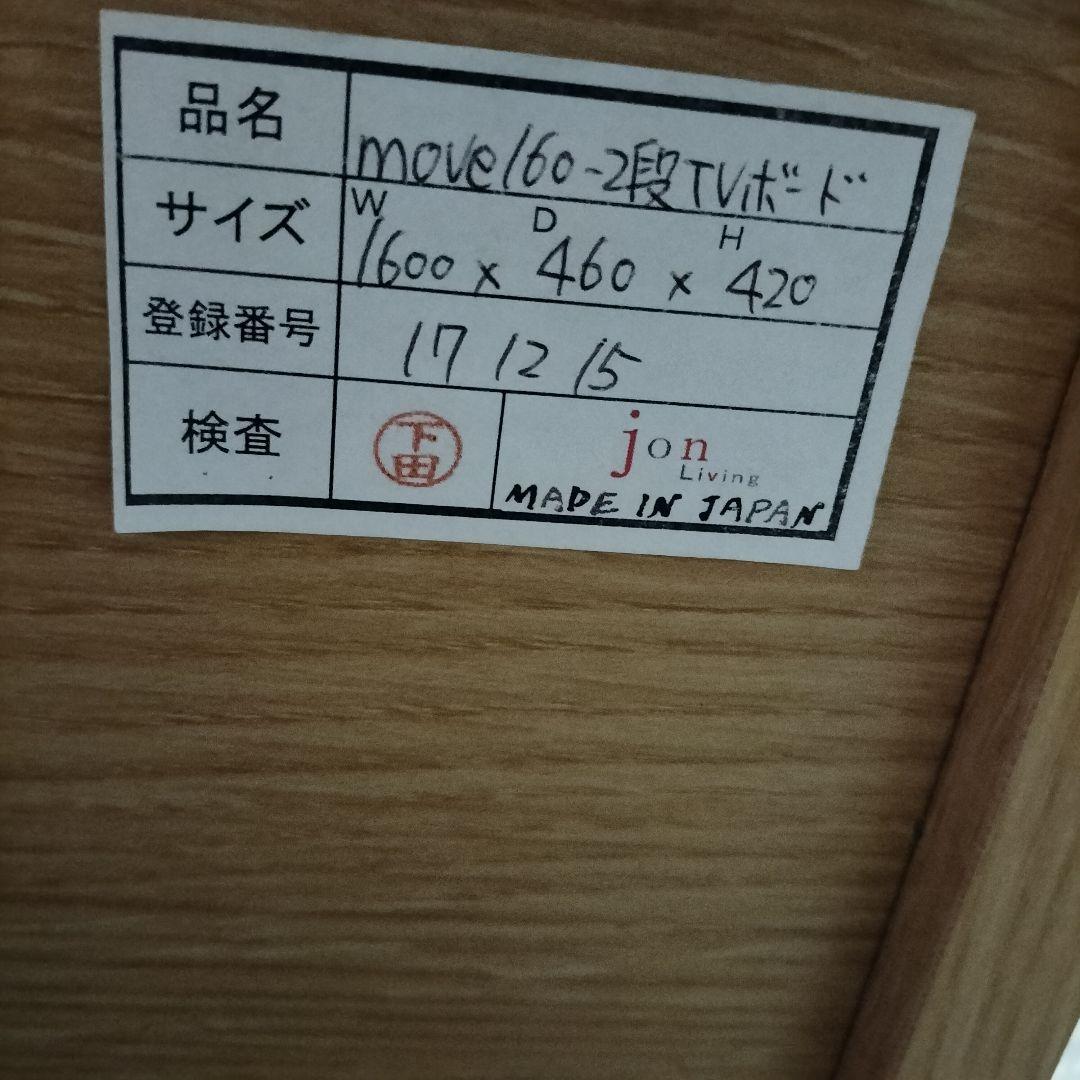 品名 move160-2段TVボード
サイズ W 1600 × D 460 × H 420
登録番号 17 12 15
検査 下田 jon
Living
MADE IN JAPAN